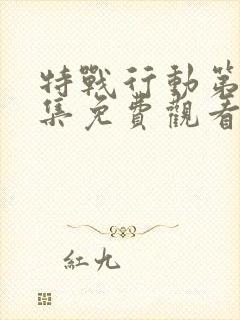 特戰行動第
集免費觀看
紅九